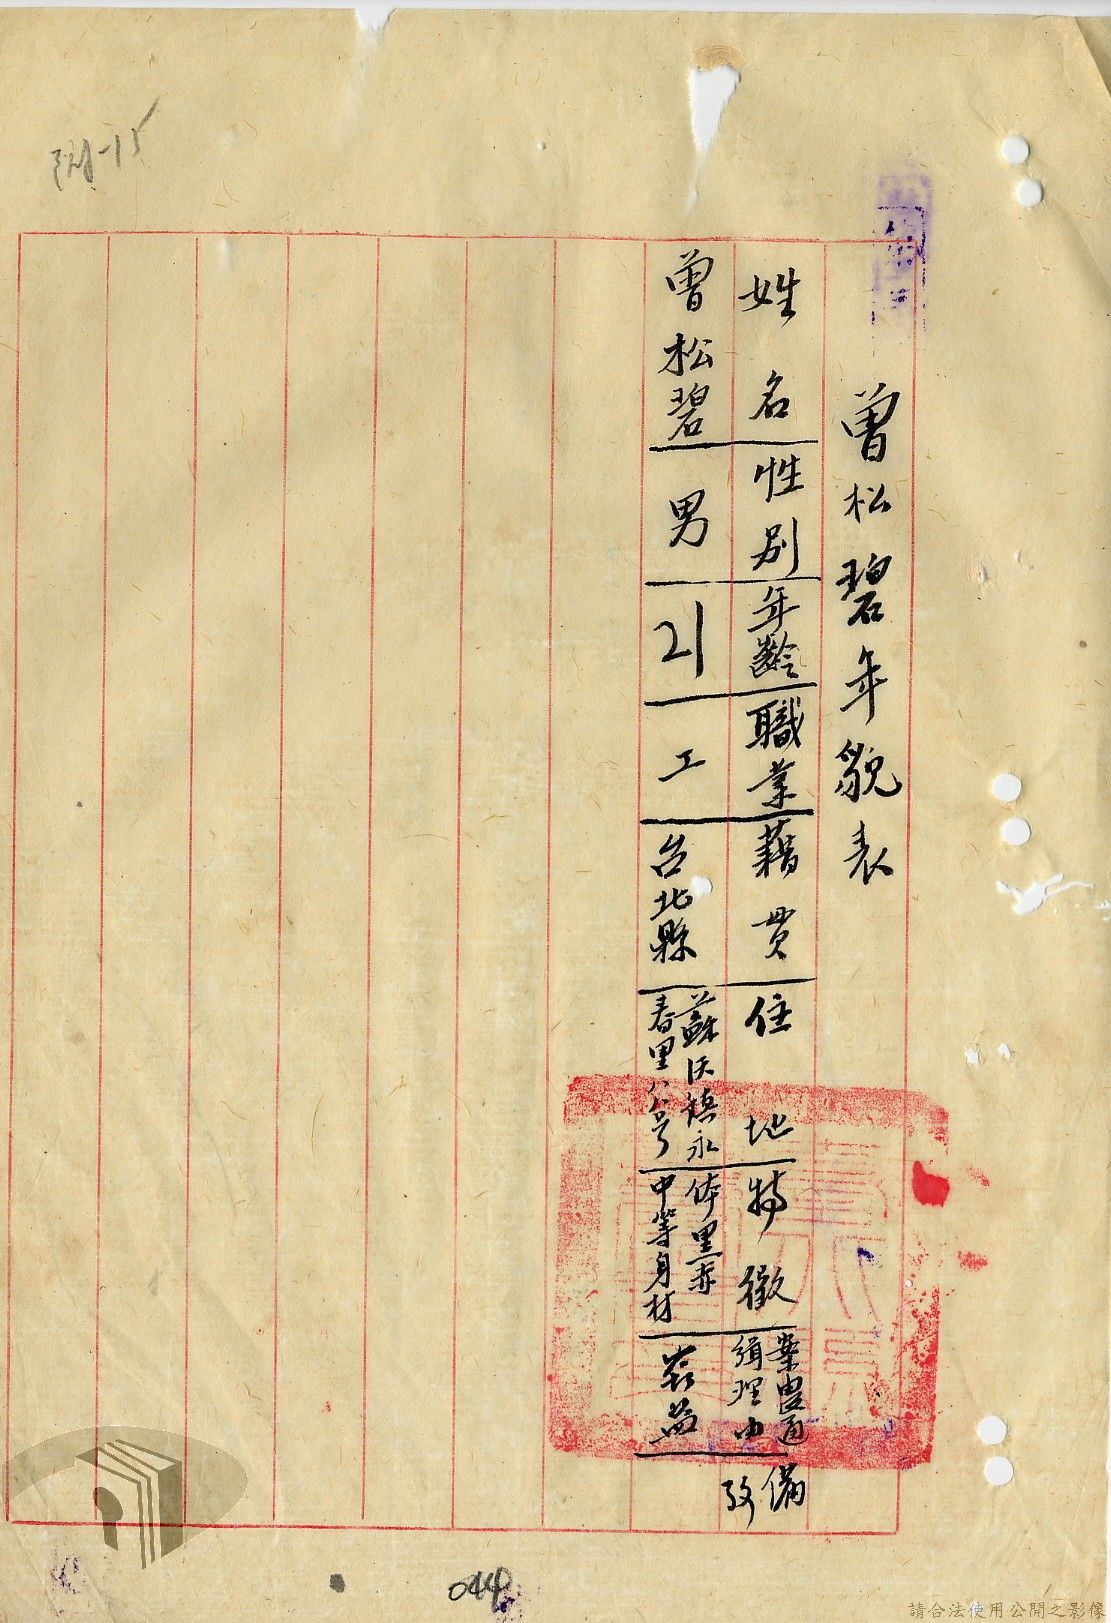 曾松碧年貌表
姓名
性別
年齡
職業
藉貫
住地
特徵
案由通
緝理由
備
攷
曾松碧
男
21
工
台北縣
蘇沃鎮永
春里八八号
体黑赤
中等身材
044
請合法使用公開之影像